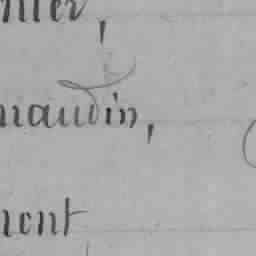 nier,
naudin,
nent